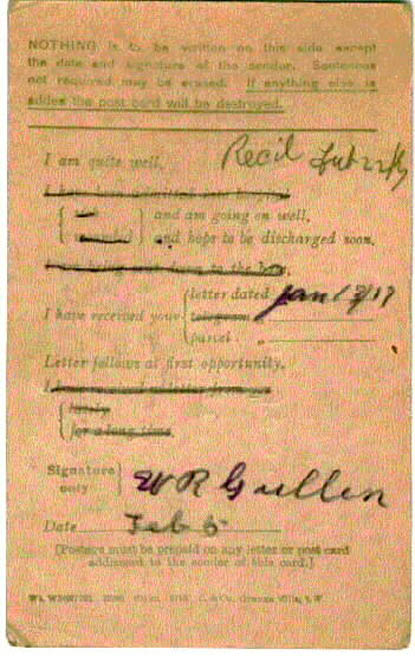 NOTHING is to be written on this side except
the date and signature of the sender. Sentences
not required may be erased. If anything else is
added the post card will be destroyed.
I am quite well.
Rec'd Feb 22/17
I have been admitted into hospital
sick and am going on well.
wounded and hope to be discharged soon.
I am being sent down to the base.
letter dated Jan 13/17
I have received your telegram „
parcel „
Letter follows at first opportunity.
I have received no letter from you
lately
for a long time.
Signature
only
W R Gullen
Date Feb 5
[Postage must be prepaid on any letter or post card
addressed to the sender of this card.]
C. & Co., Grange Mills, S.W.